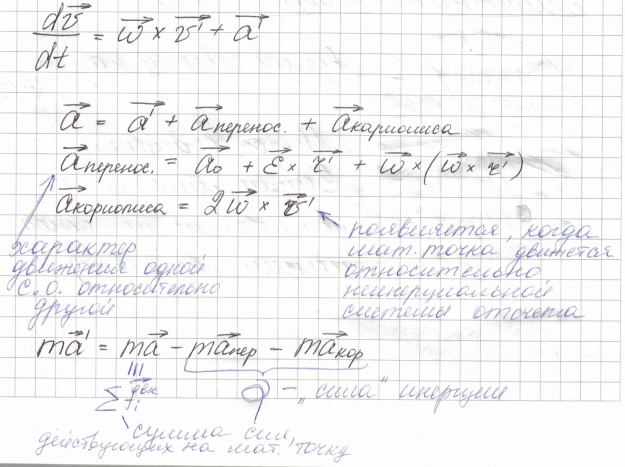 dv⃗/dt = w⃗ × v⃗' + a⃗'
a⃗ = a⃗' + a⃗перенос. + a⃗кариолиса
a⃗перенос. = a⃗₀ + ε⃗ × r⃗' + w⃗ × (w⃗ × r⃗')
a⃗кориолиса = 2w⃗ × v⃗'
характер
движения одной
с.о. относительно
другой
появляется, когда
мат. точка движется
относительно
неинерциальной
системы отсчета
ma⃗' = ma⃗ - ma⃗пер - ma⃗кор
- „сила" инерции
сумма сил,
действующих на мат. точку